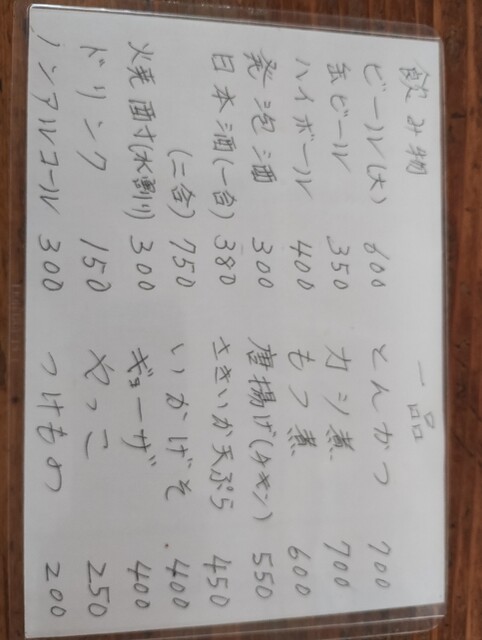 飲み物
ビール(大) 600
缶ビール 350
ハイボール 400
発泡酒 300
日本酒(一合) 380
(二合) 750
焼酎(水割り) 300
ドリンク 150
ノンアルコール 300
一品
とんかつ 700
カツ煮 700
もつ煮 600
唐揚げ(チキン) 550
さきいか天ぷら 450
いかげそ 400
ギョーザ 400
やっこ 250
つけもの 200